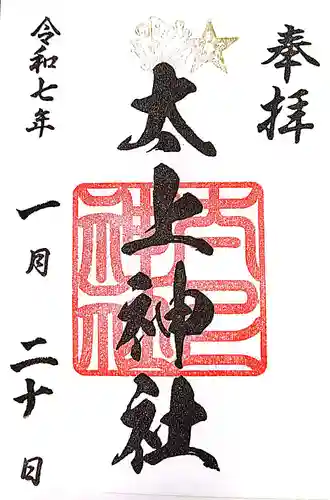 奉拝
太上神社
令和七年
一月二十日